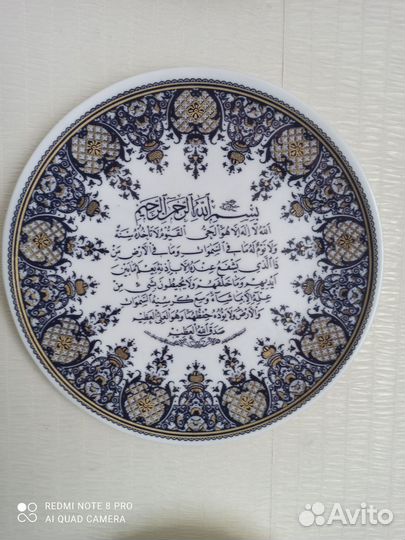 بسم الله الرحمن الرحيم
الله لا اله الا هو الحي القيوم لا تأخذه سنة
ولا نوم له ما في السموات وما في الارض من
ذا الذي يشفع عنده الا باذنه يعلم ما بين
ايديهم وما خلفهم ولا يحيطون بشئ من
علمه الا بما شاء وسع كرسيه السموات
والارض ولا يؤده حفظهما وهو العلي العظيم
صدق الله العظيم
REDMI NOTE 8 PRO
AI QUAD CAMERA
Avito